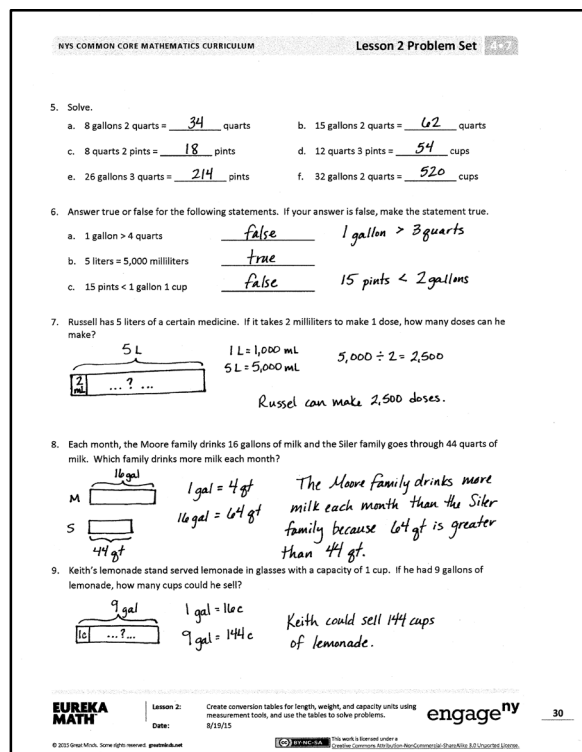 NYS COMMON CORE MATHEMATICS CURRICULUM Lesson 2 Problem Set 4•7
5. Solve.
a. 8 gallons 2 quarts = 34 quarts b. 15 gallons 2 quarts = 62 quarts
c. 8 quarts 2 pints = 18 pints d. 12 quarts 3 pints = 54 cups
e. 26 gallons 3 quarts = 214 pints f. 32 gallons 2 quarts = 520 cups
6. Answer true or false for the following statements. If your answer is false, make the statement true.
a. 1 gallon > 4 quarts false 1 gallon > 3 quarts
b. 5 liters = 5,000 milliliters true
c. 15 pints < 1 gallon 1 cup false 15 pints < 2 gallons
7. Russell has 5 liters of a certain medicine. If it takes 2 milliliters to make 1 dose, how many doses can he
make?
5 L 1 L = 1,000 mL 5,000 ÷ 2 = 2,500
5 L = 5,000 mL
2 mL ... ? ...
Russel can make 2,500 doses.
8. Each month, the Moore family drinks 16 gallons of milk and the Siler family goes through 44 quarts of
milk. Which family drinks more milk each month?
16 gal
M 1 gal = 4 qt The Moore family drinks more
16 gal = 64 qt milk each month than the Siler
S family because 64 qt is greater
44 qt than 44 qt.
9. Keith's lemonade stand served lemonade in glasses with a capacity of 1 cup. If he had 9 gallons of
lemonade, how many cups could he sell?
9 gal 1 gal = 16c
1c ...?... 9 gal = 144 c Keith could sell 144 cups
of lemonade.
EUREKA
MATH
Lesson 2: Create conversion tables for length, weight, and capacity units using
measurement tools, and use the tables to solve problems.
Date: 8/19/15
engageny 30
© 2015 Great Minds. Some rights reserved. greatminds.net
CC BY-NC-SA This work is licensed under a
Creative Commons Attribution-NonCommercial-ShareAlike 3.0 Unported License.